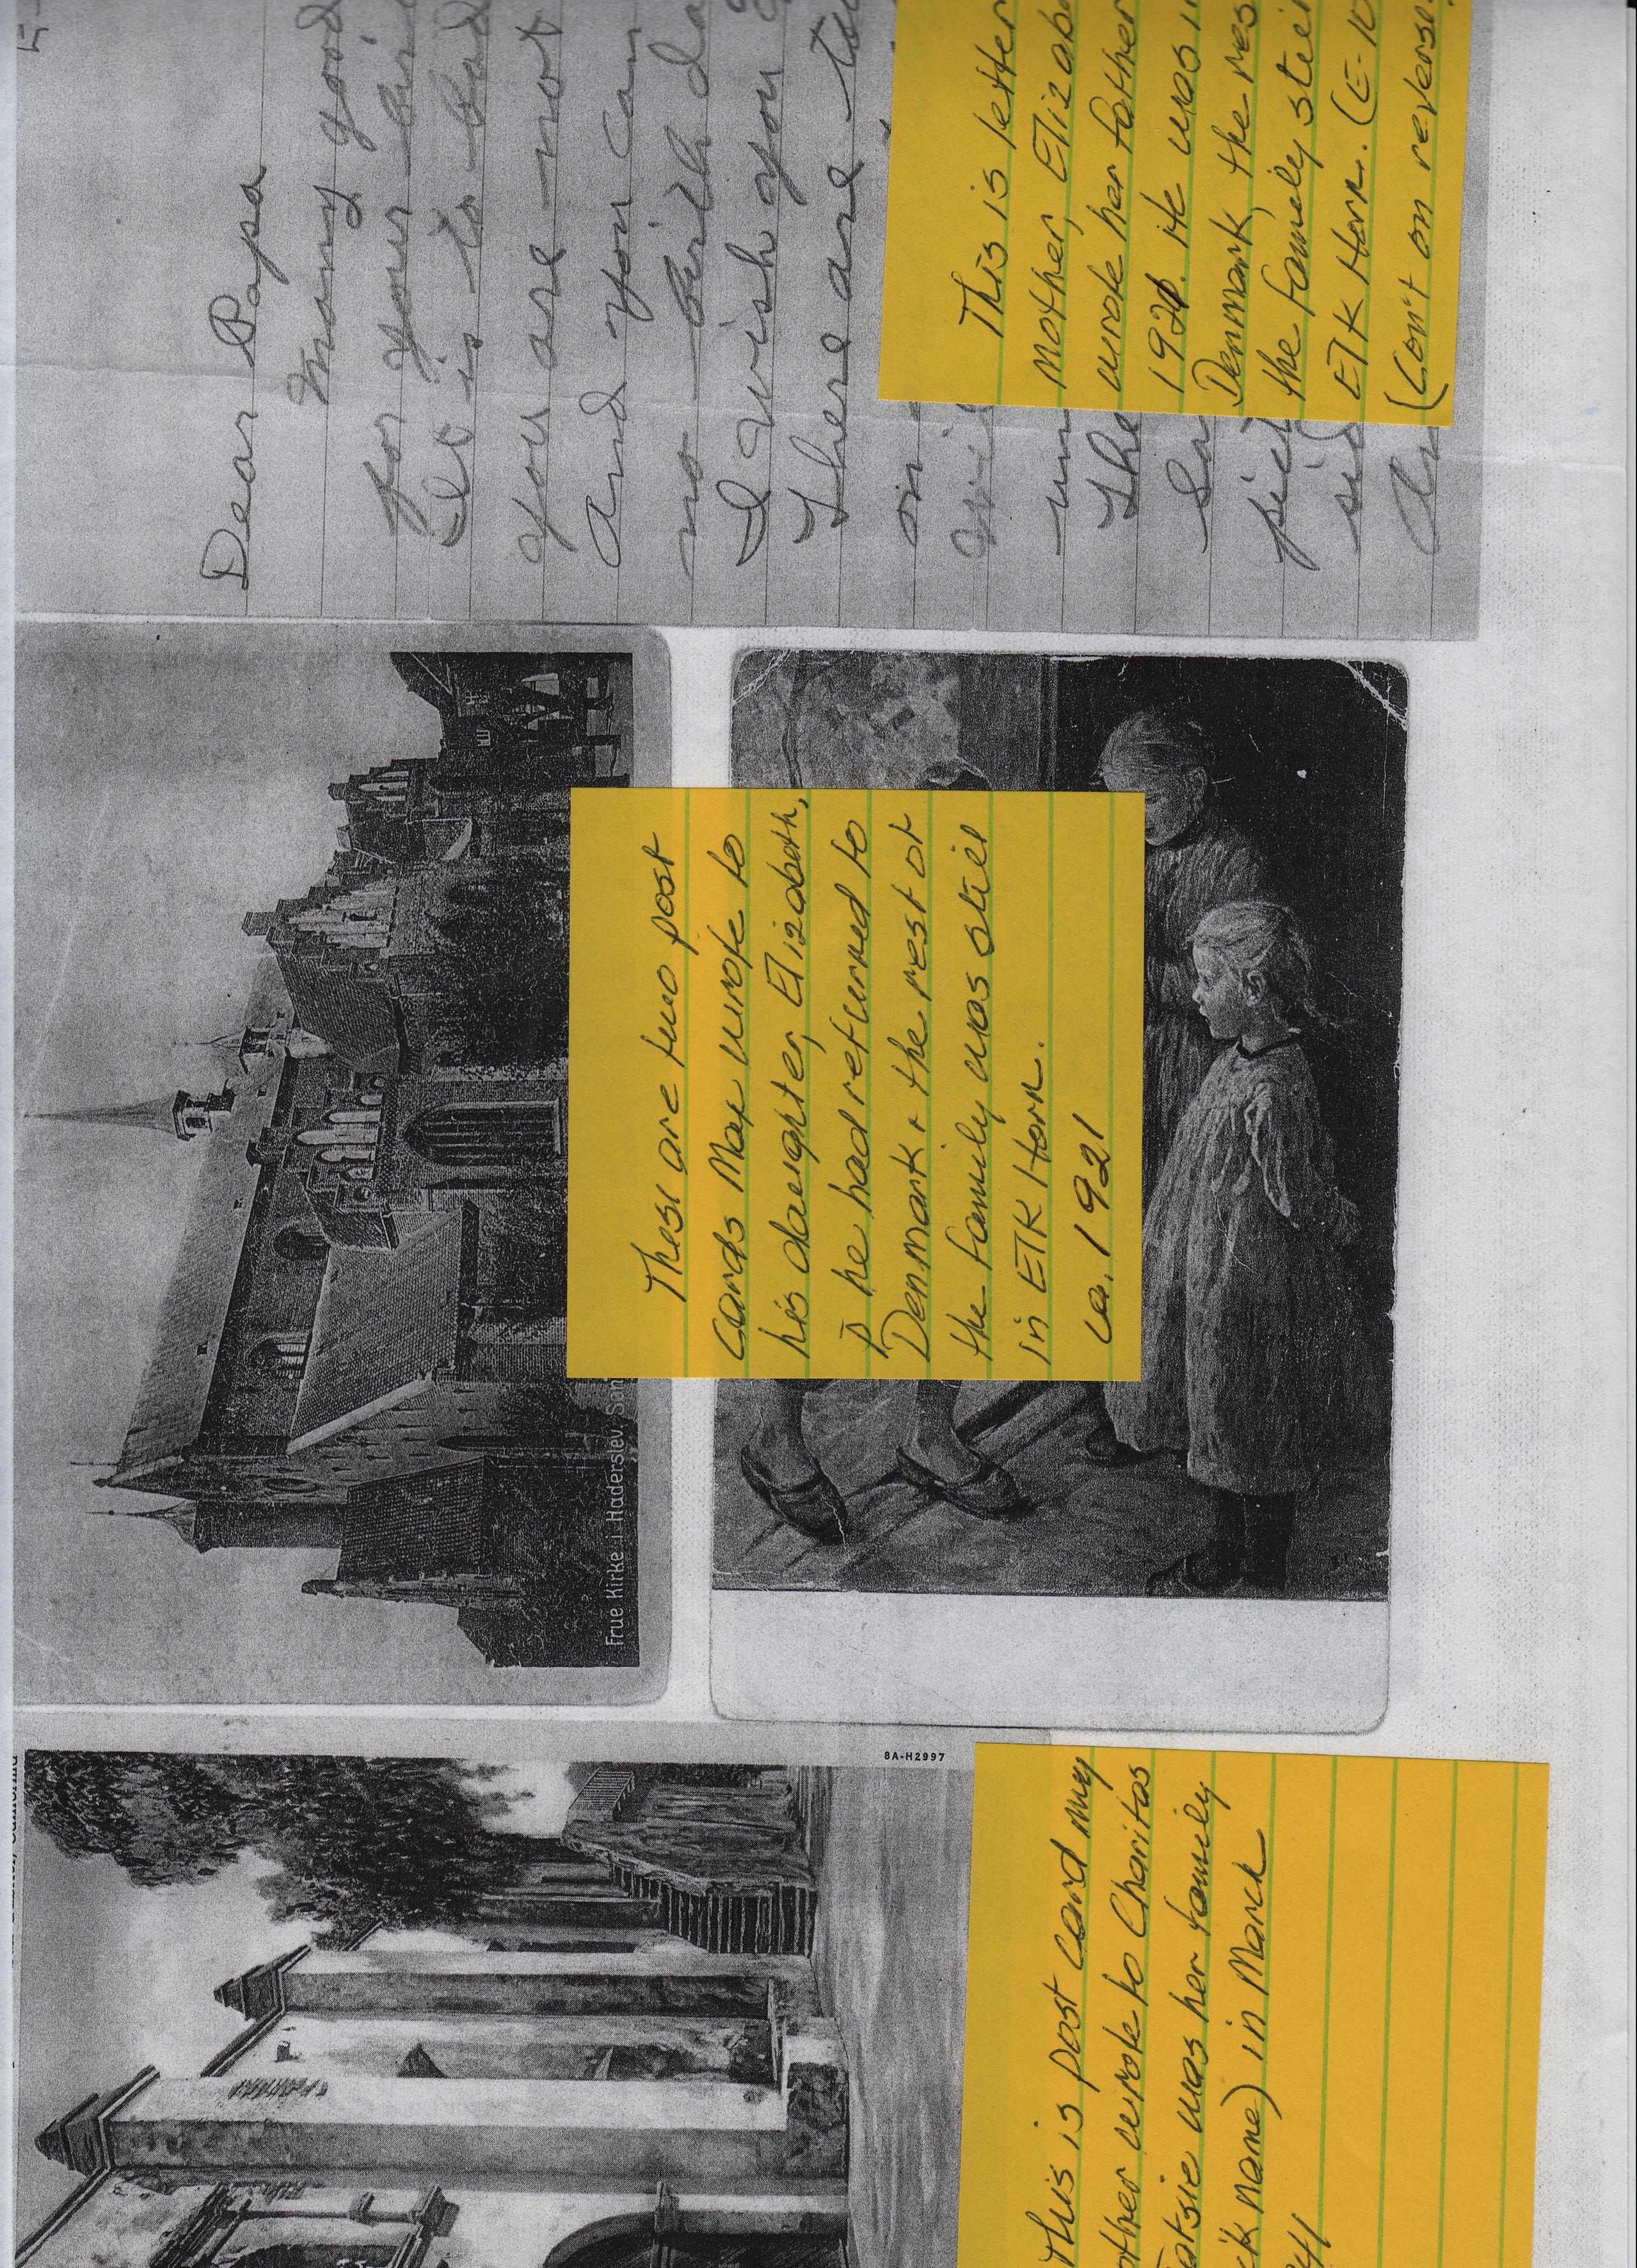 Dear Papa
Many good
for your bir
It is to bad
you are not
And you can
no birth da
I wish you
There are to
on
will
The
Sa
pi
si
An
This is letter
mother, Elizabe
wrote her father
1921. He was i
Denmark, the res
the family stil
Elk Horn. (E-10
(Con't on reverse.
Frue Kirke i Haderslev. Søn
These are two post
cards Max wrote to
his daughter, Elizabeth,
p̄ he had returned to
Denmark & the rest of
the family was still
in Elk Horn.
ca. 1921
8A-H2997
This is post card my
other wrote to Charitas
atsie was her family
ck name) in March